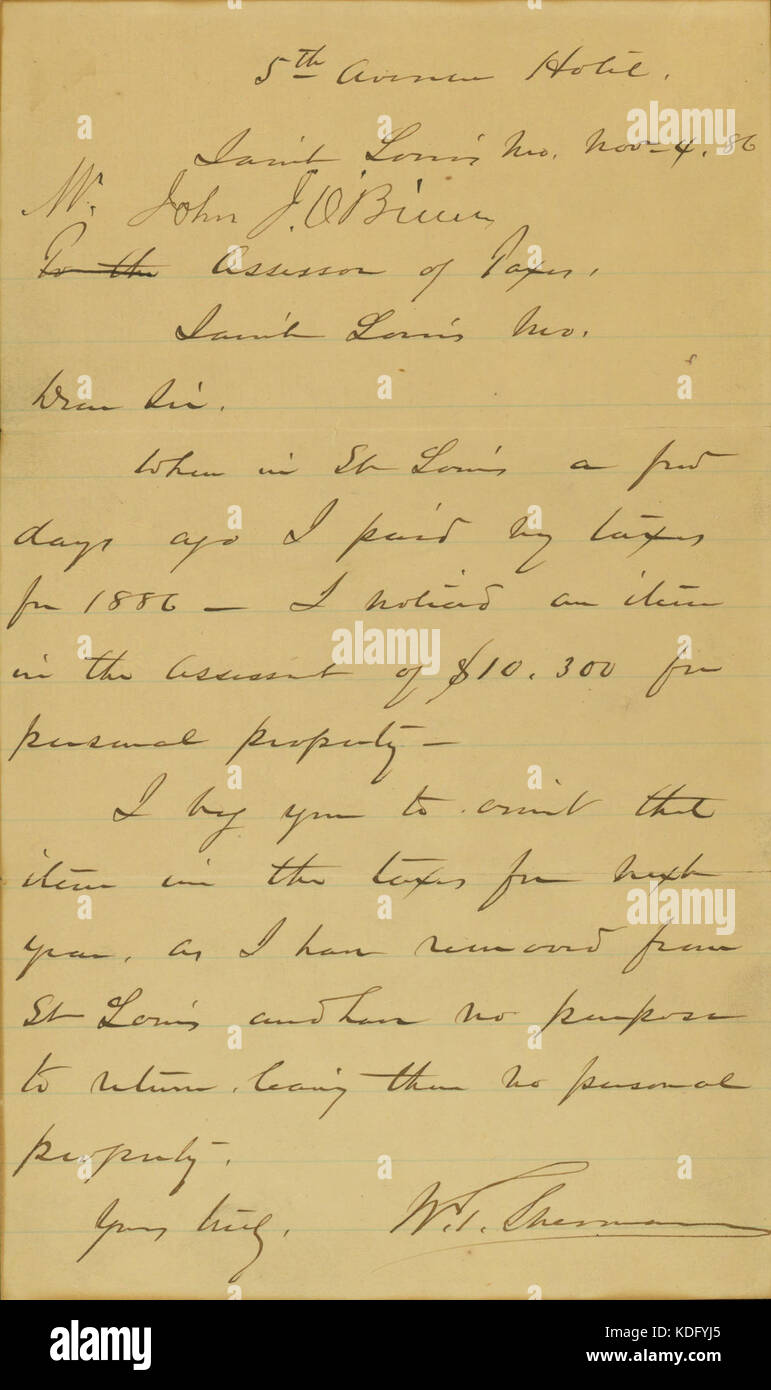 5th Avenue Hotel.
Saint Louis Mo. Nov. 4. 86
Mr. John J. O'Brien
To the Assessor of Taxes,
Saint Louis Mo.
Dear Sir.
When in St Louis a few
days ago I paid my taxes
for 1886 — I noticed an item
in the Assessmt of $10.300 for
personal property —
I beg you to omit that
item in the taxes for next
year, as I have removed from
St Louis and have no purpose
to return, leaving there no personal
property.
Yours truly,
W. T. Sherman
alamy stock photo
KDFYJ5
www.alamy.com